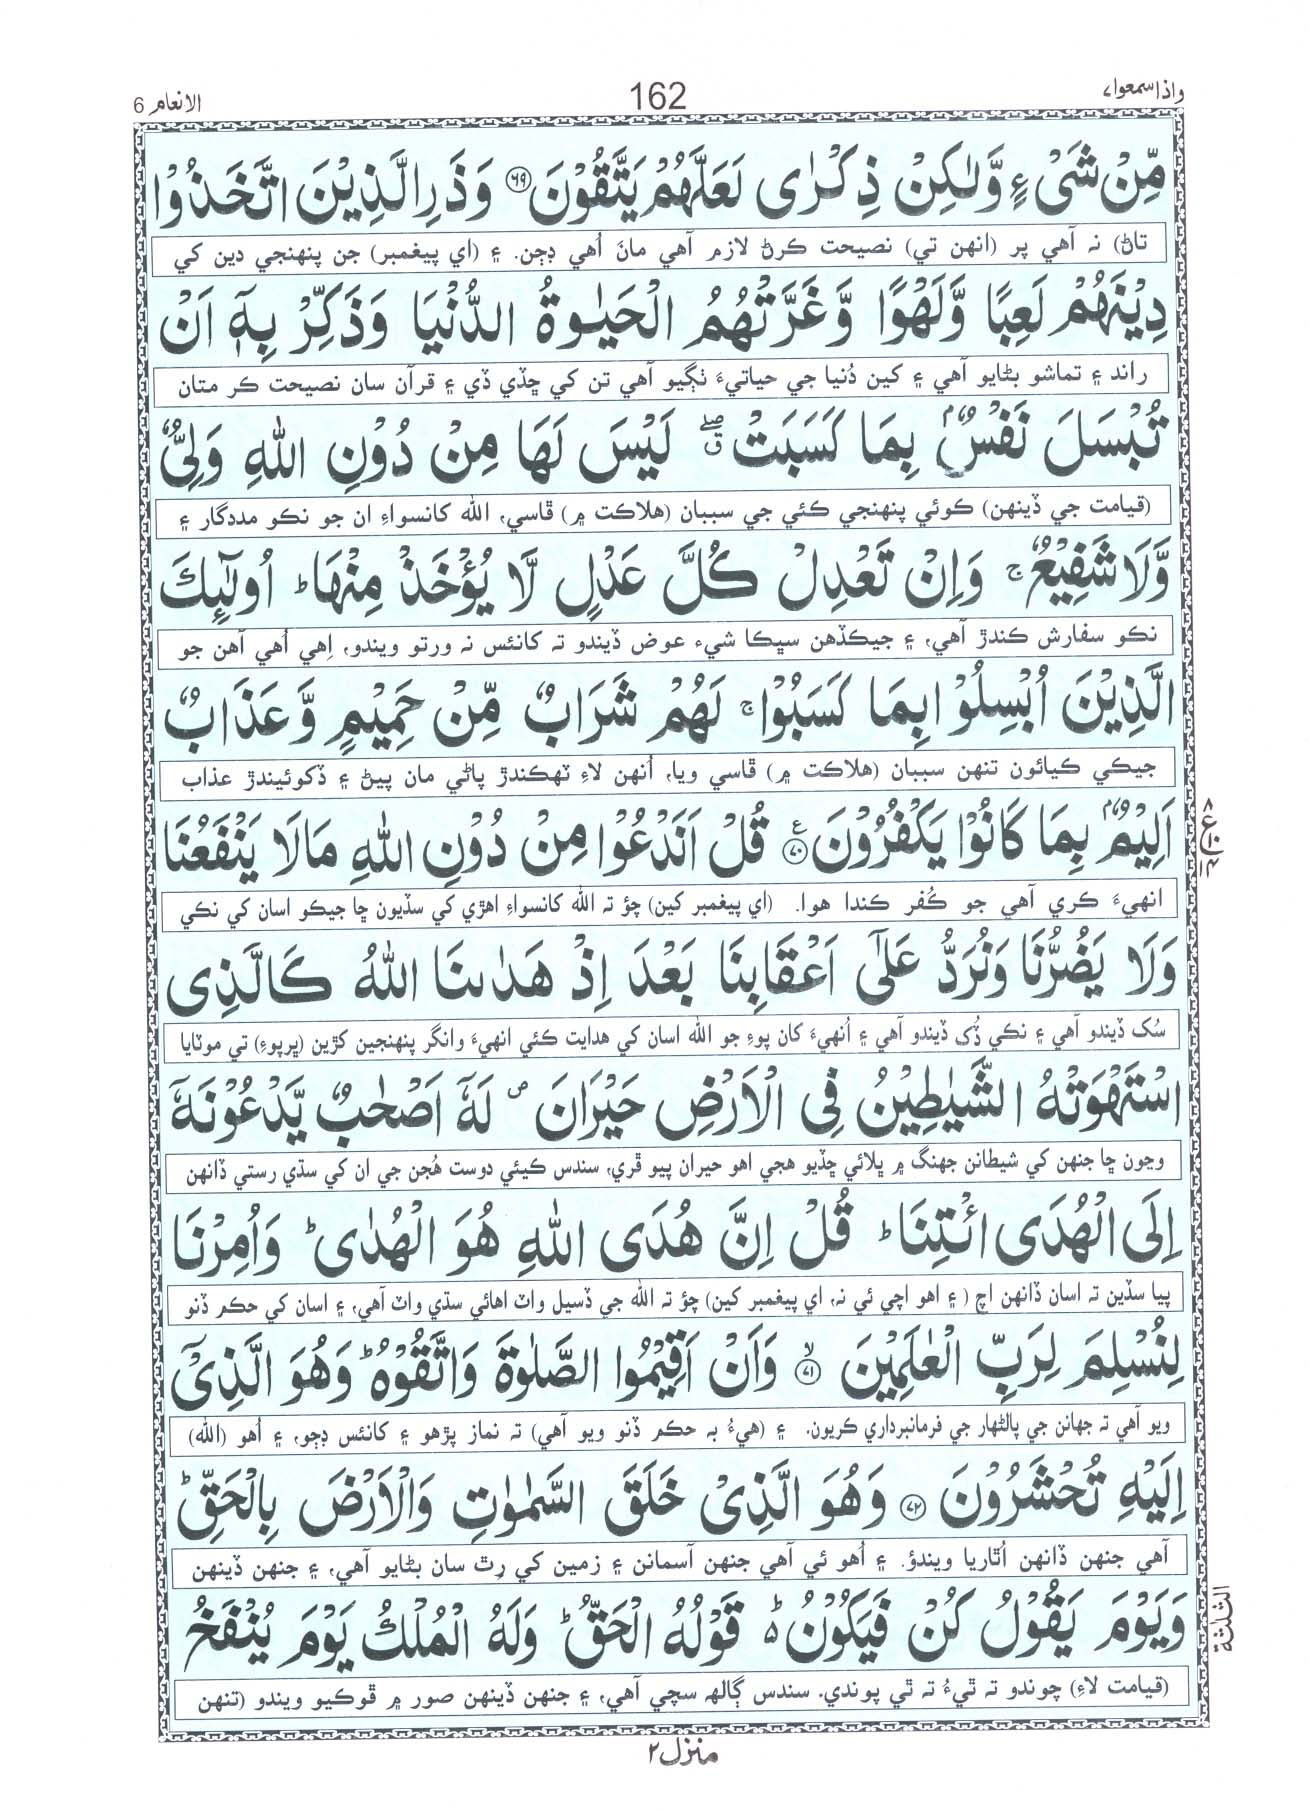 واذاسمعوا٧
162
الانعام 6
مِّنْ شَیْءٍ وَّلٰكِنْ ذِكْرٰى لَعَلَّهُمْ يَتَّقُوْنَ ۶۹ وَذَرِ الَّذِيْنَ اتَّخَذُوْا
تاڻ) نہ آهي پر (انهن تي) نصيحت ڪرڻ لازم آهي مانَ اُهي ڊڄن. ۽ (اي پيغمبر) جن پنهنجي دين کي
دِيْنَهُمْ لَعِبًا وَّلَهْوًا وَّغَرَّتْهُمُ الْحَيٰوةُ الدُّنْيَا وَذَكِّرْ بِهٖٓ اَنْ
راند ۽ تماشو بڻايو آهي ۽ کين دُنيا جي حياتيءَ ٺڳيو آهي تن کي ڇڏي ڏي ۽ قرآن سان نصيحت ڪر متان
تُبْسَلَ نَفْسٌۢ بِمَا كَسَبَتْ ۖق لَيْسَ لَهَا مِنْ دُوْنِ اللّٰهِ وَلِيٌّ
(قيامت جي ڏينهن) ڪوئي پنهنجي ڪئي جي سببان (هلاڪت ۾) ڦاسي، الله کانسواءِ ان جو نڪو مددگار ۽
وَّلَا شَفِيْعٌ ۚ وَاِنْ تَعْدِلْ كُلَّ عَدْلٍ لَّا يُؤْخَذْ مِنْهَا ؕ اُولٰٓئِكَ
نڪو سفارش ڪندڙ آهي، ۽ جيڪڏهن سڀڪا شيء عوض ڏيندو تہ کانئس نہ ورتو ويندو، اِهي اُهي آهن جو
الَّذِيْنَ اُبْسِلُوْا بِمَا كَسَبُوْا ۚ لَهُمْ شَرَابٌ مِّنْ حَمِيْمٍ وَّعَذَابٌ
جيڪي ڪيائون تنهن سببان (هلاڪت ۾) ڦاسي ويا، اُنهن لاءِ ٽهڪندڙ پاڻي مان پيئڻ ۽ ڏکوئيندڙ عذاب
اَلِيْمٌۢ بِمَا كَانُوْا يَكْفُرُوْنَ ۷۰ ع قُلْ اَنَدْعُوْا مِنْ دُوْنِ اللّٰهِ مَا لَا يَنْفَعُنَا
انهيءَ ڪري آهي جو ڪُفر ڪندا هوا. (اي پيغمبر کين) چؤ تہ الله کانسواءِ اهڙي کي سڏيون ڇا جيڪو اسان کي نڪي
وَلَا يَضُرُّنَا وَنُرَدُّ عَلٰٓى اَعْقَابِنَا بَعْدَ اِذْ هَدٰىنَا اللّٰهُ كَالَّذِى
سُک ڏيندو آهي ۽ نڪي ڏُک ڏيندو آهي ۽ اُنهيءَ کان پوءِ جو الله اسان کي هدايت ڪئي انهيءَ وانگر پنهنجين کڙين (ڀرپوءِ) تي موٽايا
اسْتَهْوَتْهُ الشَّيٰطِيْنُ فِى الْاَرْضِ حَيْرَانَ ص لَهٗٓ اَصْحٰبٌ يَّدْعُوْنَهٗٓ
وڃون ڇا جنهن کي شيطانن جهنگ ۾ ڀلائي ڇڏيو هجي اهو حيران پيو ڦري، سندس ڪيئي دوست هُجن جي ان کي سڌي رستي ڏانهن
اِلَى الْهُدَى ائْتِنَا ؕ قُلْ اِنَّ هُدَى اللّٰهِ هُوَ الْهُدٰى ؕ وَاُمِرْنَا
پيا سڏين تہ اسان ڏانهن اچ ( ۽ اهو اچي ئي نہ، اي پيغمبر کين) چؤ تہ الله جي ڏسيل واٽ اهائي سڌي واٽ آهي، ۽ اسان کي حڪم ڏنو
لِنُسْلِمَ لِرَبِّ الْعٰلَمِيْنَ ۷۱ لا وَاَنْ اَقِيْمُوا الصَّلٰوةَ وَاتَّقُوْهُ ؕ وَهُوَ الَّذِىْٓ
ويو آهي تہ جهانن جي پالڻهار جي فرمانبرداري ڪريون. ۽ (هيءُ بہ حڪم ڏنو ويو آهي) تہ نماز پڙهو ۽ کانئس ڊڄو، ۽ اُهو (الله)
اِلَيْهِ تُحْشَرُوْنَ ۷۲ وَهُوَ الَّذِىْ خَلَقَ السَّمٰوٰتِ وَالْاَرْضَ بِالْحَقِّ ؕ
آهي جنهن ڏانهن اُٿاريا ويندؤ. ۽ اُهو ئي آهي جنهن آسمانن ۽ زمين کي رِٿ سان بڻايو آهي، ۽ جنهن ڏينهن
وَيَوْمَ يَقُوْلُ كُنْ فَيَكُوْنُ ؕ۵ قَوْلُهُ الْحَقُّ ؕ وَلَهُ الْمُلْكُ يَوْمَ يُنْفَخُ
(قيامت لاءِ) چوندو تہ ٿيءُ تہ ٿي پوندي. سندس ڳالھ سچي آهي، ۽ جنهن ڏينهن صور ۾ ڦوڪيو ويندو (تنهن
٨ ع ١٠ ١٤
الثلثة
منزل۲